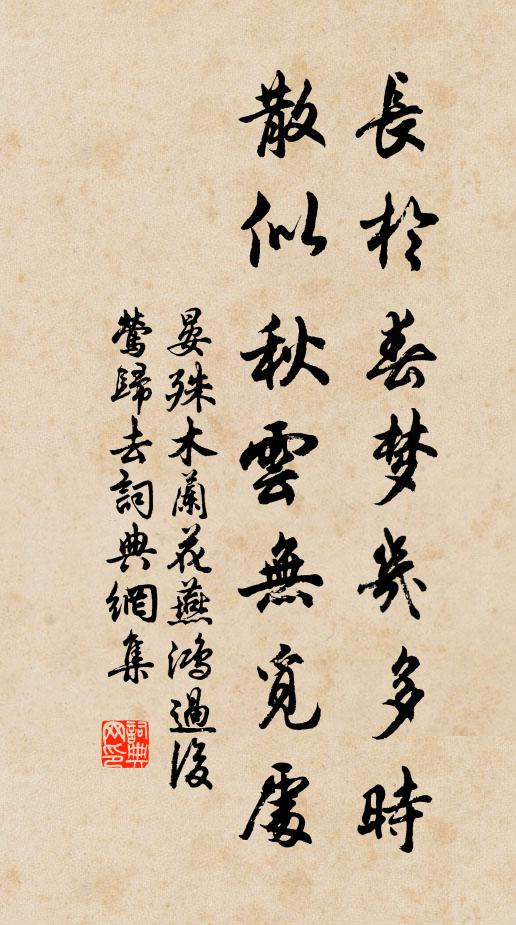 長於春梦幾多時
散似秋雲無覓處
晏殊木蘭花燕鴻過後
鶯歸去詞典網集
詞典
网印